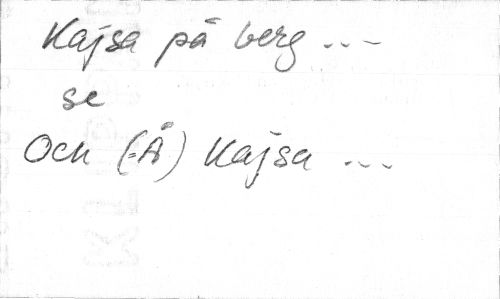 Kajsa på berg ...
se
Och (-Å) Kajsa ...